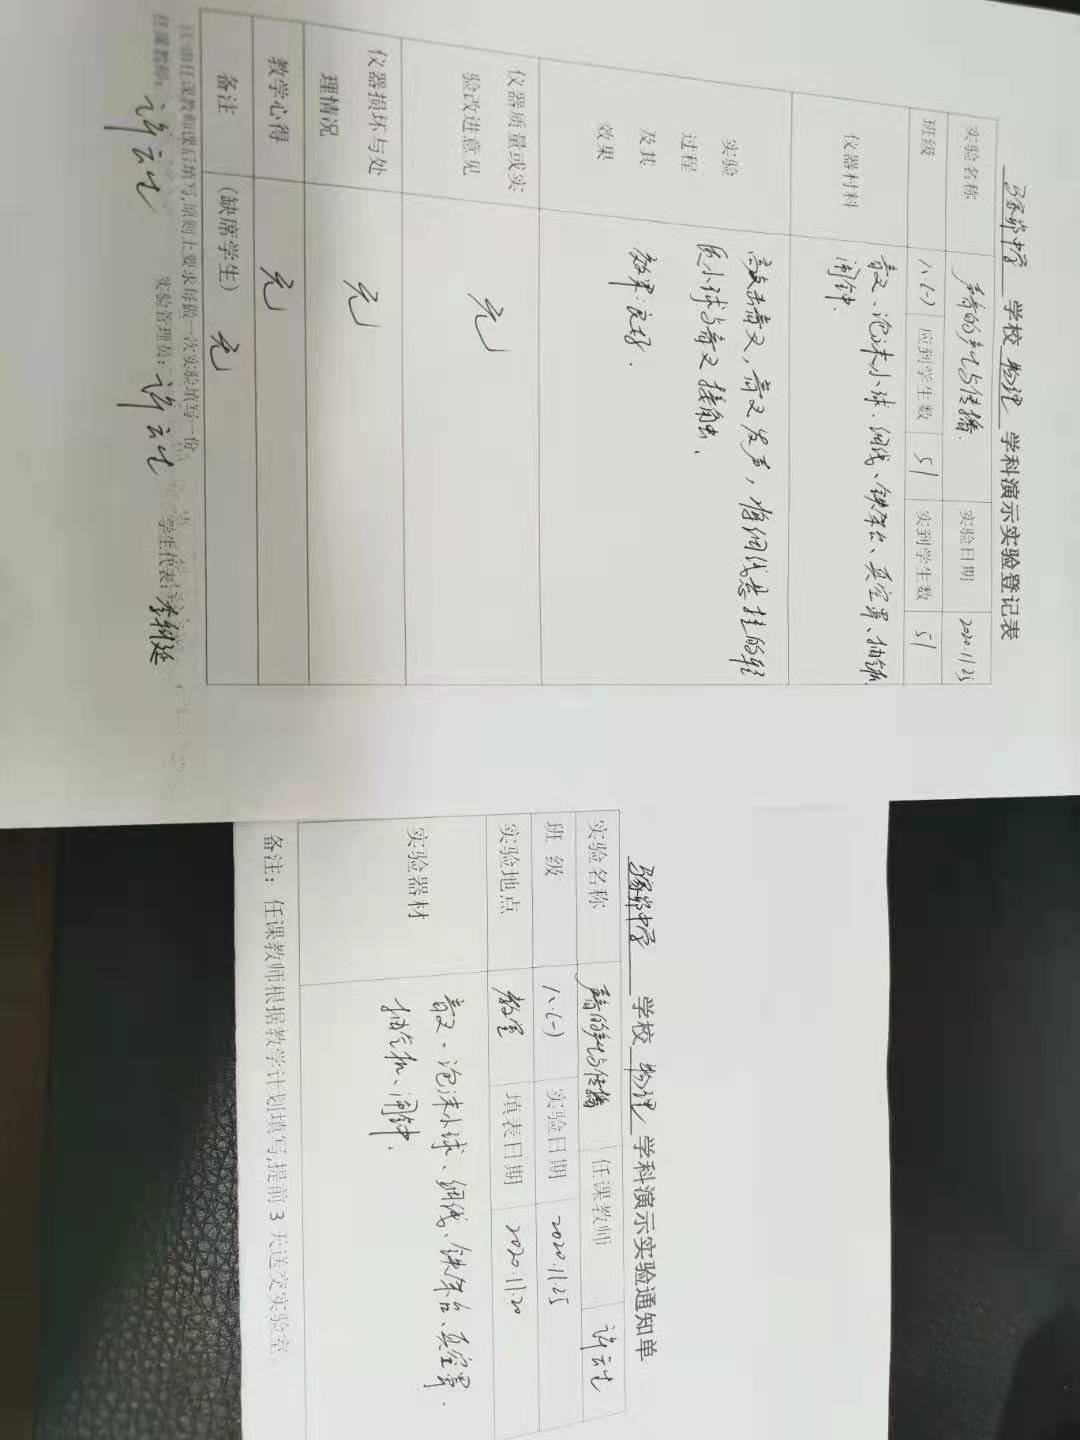 学校 物理 学科演示实验登记表
实验名称 声音的产生与传播 实验日期 2020.11.25
班级 八.(一) 应到学生数 51 实到学生数 51
仪器材料 音叉、泡沫小球、细线、铁架台、真空罩、抽气机
闹钟.
实验
过程
及其
效果
敲击音叉,音叉发声,将细线悬挂的轻
质小球与音叉接触、
效果:良好.
仪器质量或实
验改进意见
无
仪器损坏与处
理情况
无
教学心得 无
备注 (缺席学生) 无
任课教师课后填写,原则上要求每做一次实验填写一份
任课教师: 实验管理员: 学生代表:
学校 物理 学科演示实验通知单
实验名称 声音的产生与传播 任课教师
班 级 八.(一) 实验日期 2020.11.25
实验地点 教室 填表日期 2020.11.20
实验器材 音叉、泡沫小球、细线、铁架台、真空罩.
抽气机、闹钟.
备注: 任课教师根据教学计划填写,提前 3 天送交实验室